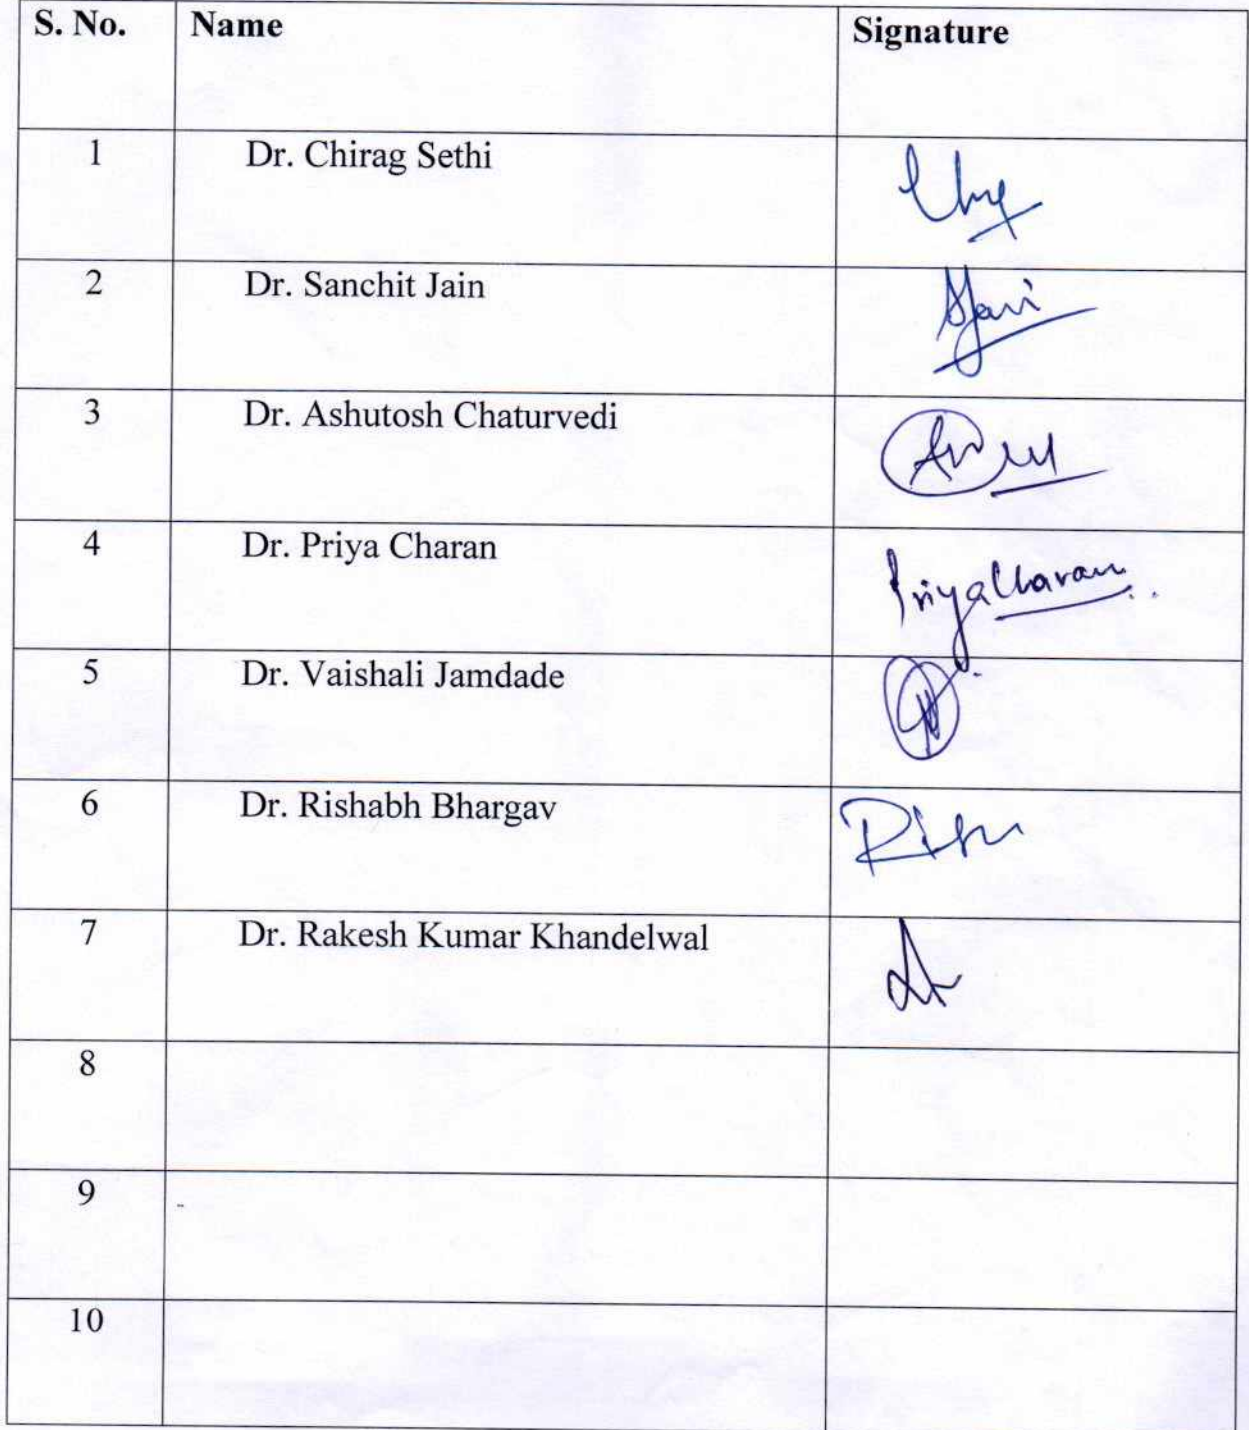 S. No. Name Signature
1 Dr. Chirag Sethi
2 Dr. Sanchit Jain
3 Dr. Ashutosh Chaturvedi
4 Dr. Priya Charan Priya Charan
5 Dr. Vaishali Jamdade
6 Dr. Rishabh Bhargav
7 Dr. Rakesh Kumar Khandelwal
8
9
10